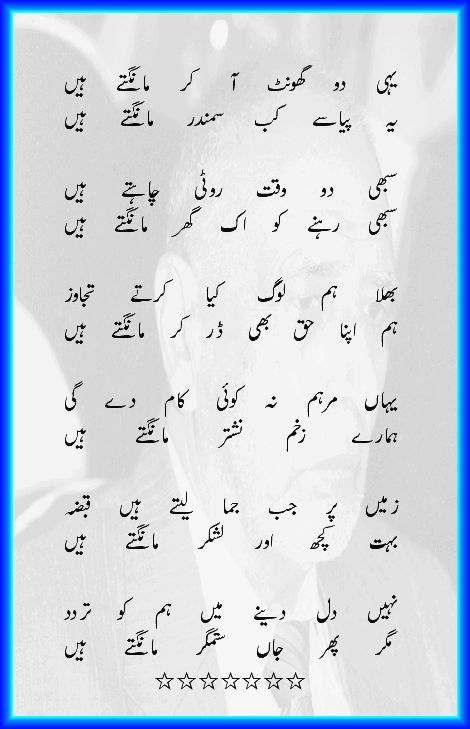 یہی دو گھونٹ آ کر مانگتے ہیں
یہ پیاسے کب سمندر مانگتے ہیں
سبھی دو وقت روٹی چاہتے ہیں
سبھی رہنے کو اک گھر مانگتے ہیں
بھلا ہم لوگ کیا کرتے تجاوز
ہم اپنا حق بھی ڈر کر مانگتے ہیں
یہاں مرہم نہ کوئی کام دے گی
ہمارے زخم نشتر مانگتے ہیں
زمیں پر جب جما لیتے ہیں قبضہ
بہت کچھ اور لشکر مانگتے ہیں
نہیں دل دینے میں ہم کو تردد
مگر پھر جاں ستمگر مانگتے ہیں
☆☆☆☆☆☆☆